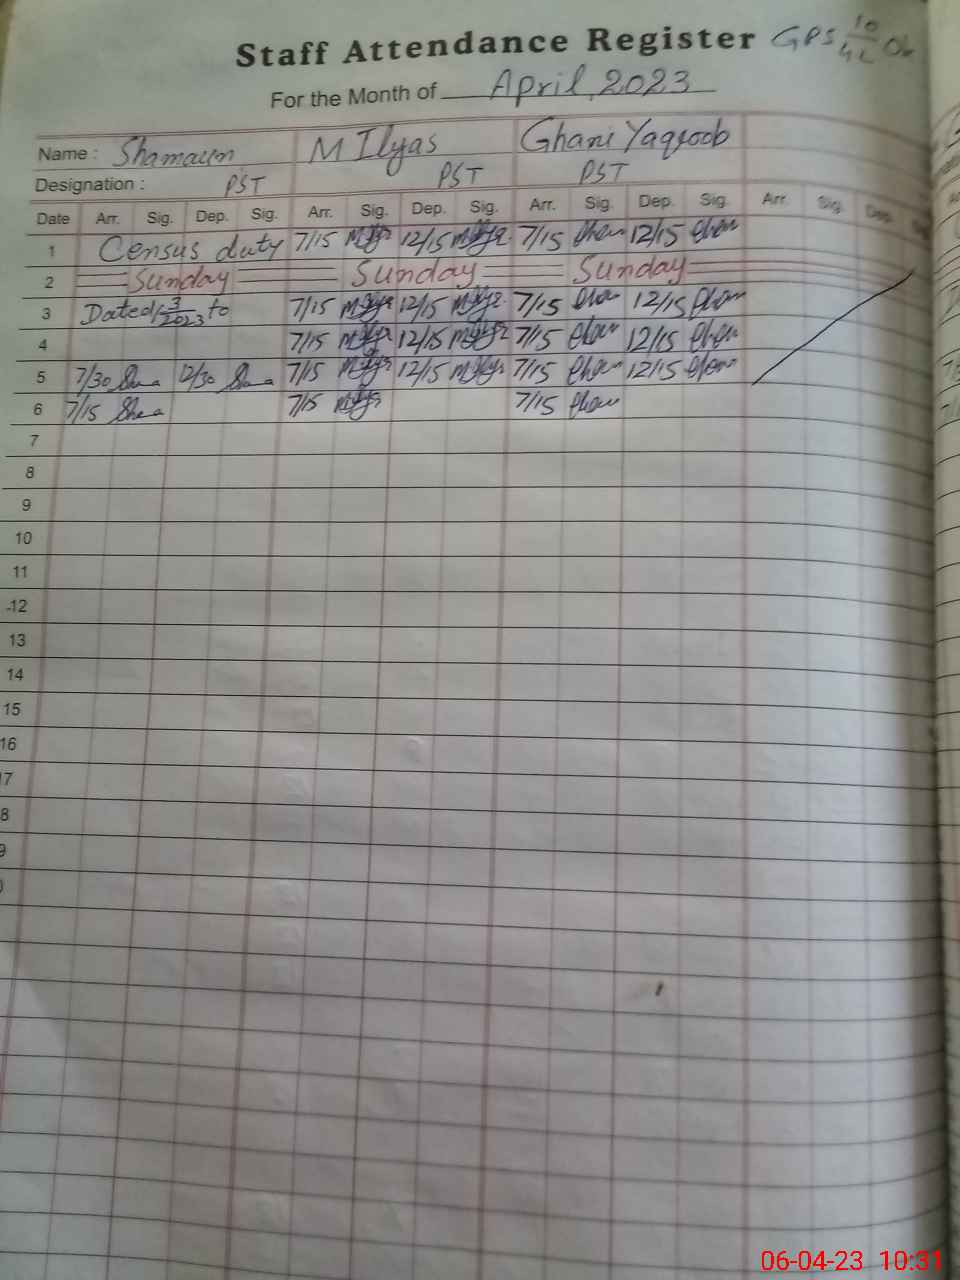 Staff Attendance Register GPS 10
For the Month of April, 2023
Name : Shamaun M Ilyas Ghani Yaqoob
Designation : PST PST PST
Date Arr. Sig. Dep. Sig. Arr. Sig. Dep. Sig. Arr. Sig. Dep. Sig. Arr. Sig. Dep.
1 Census duty 7/15 12/15 7/15 12/15
2 Sunday Sunday Sunday
3 Dated 3/2023 to 7/15 12/15 7/15 12/15
4 7/15 12/15 7/15 12/15
5 7/30 12/30 7/15 12/15 7/15 12/15
6 7/15 7/15 7/15
7
8
9
10
11
12
13
14
15
16
7
8
9
06-04-23 10:31